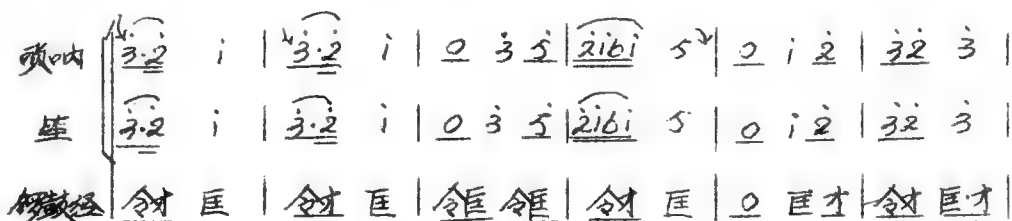 唢呐 3·2 i | 3·2 i | 0 3 5 | 2i6i 5 | 0 i 2 | 32 3 |
笙 3·2 i | 3·2 i | 0 3 5 | 2i6i 5 | 0 i 2 | 32 3 |
锣鼓经 令才 匡 | 令才 匡 | 令匡 令匡 | 令才 匡 | 0 匡才 | 令才 匡·才 |